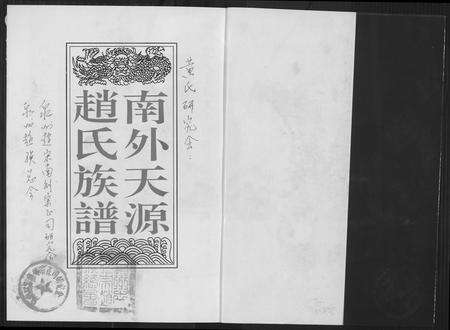 黄氏研究会：
南外天源
趙氏族譜
泉州趙宋南外宗正司研究会
泉州趙联谊会